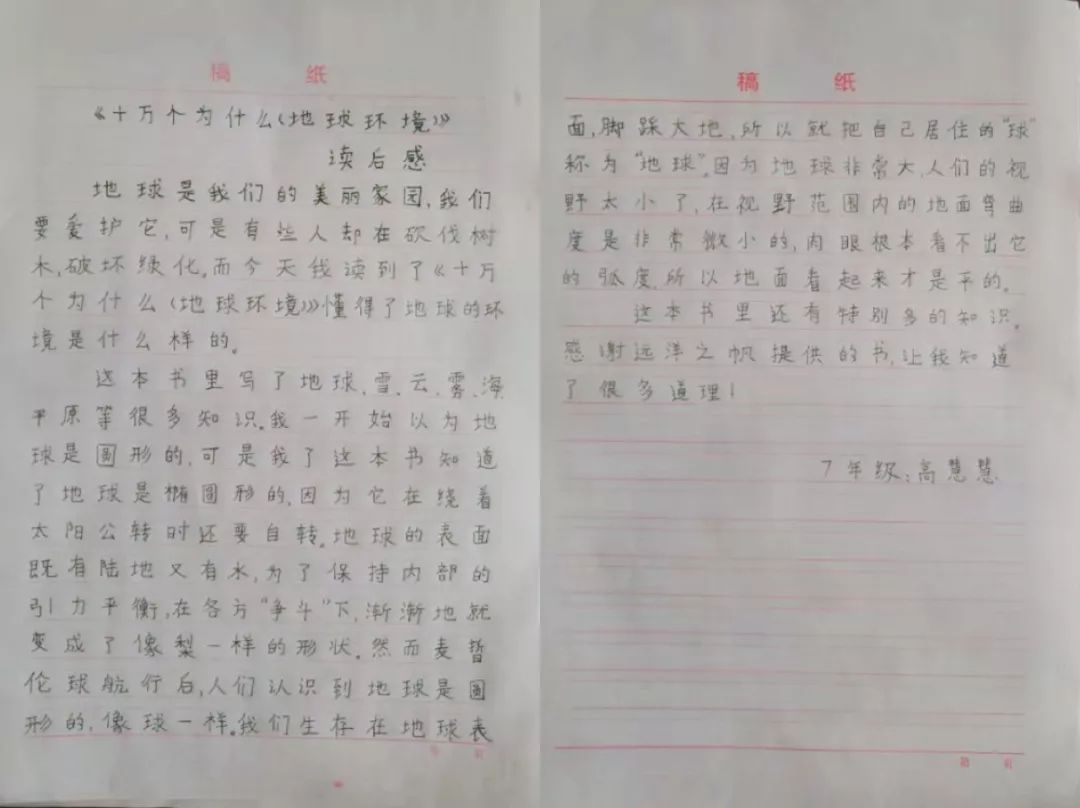 稿 纸
《十万个为什么(地球环境)》
读后感
地球是我们的美丽家园,我们
要爱护它,可是有些人却在砍伐树
木,破坏绿化,而今天我读到了《十万
个为什么(地球环境)》懂得了地球的环
境是什么样的。
这本书里写了地球、雪、云、雾、海
平原等很多知识。我一开始以为地
球是圆形的,可是我了这本书知道
了地球是椭圆形的,因为它在绕着
太阳公转时还要自转。地球的表面
既有陆地又有水,为了保持内部的
引力平衡,在各方“争斗”下,渐渐地就
变成了像梨一样的形状。然而麦哲
伦球航行后,人们认识到地球是圆
形的,像球一样。我们生存在地球表
稿 纸
面,脚踩大地,所以就把自己居住的“球”
称为“地球”。因为地球非常大,人们的视
野太小了,在视野范围内的地面弯曲
度是非常微小的,肉眼根本看不出它
的弧度,所以地面看起来才是平的。
这本书里还有特别多的知识。
感谢远洋之帆提供的书,让我知道
了很多道理!
7年级:高慧慧
第 页